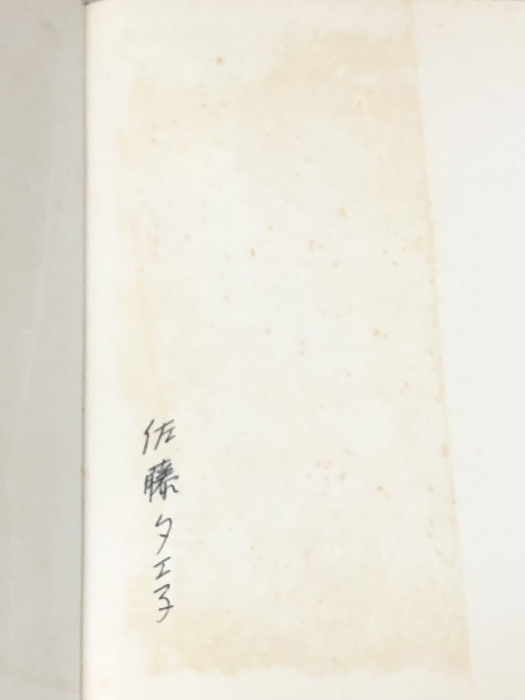 佐藤夕エ子